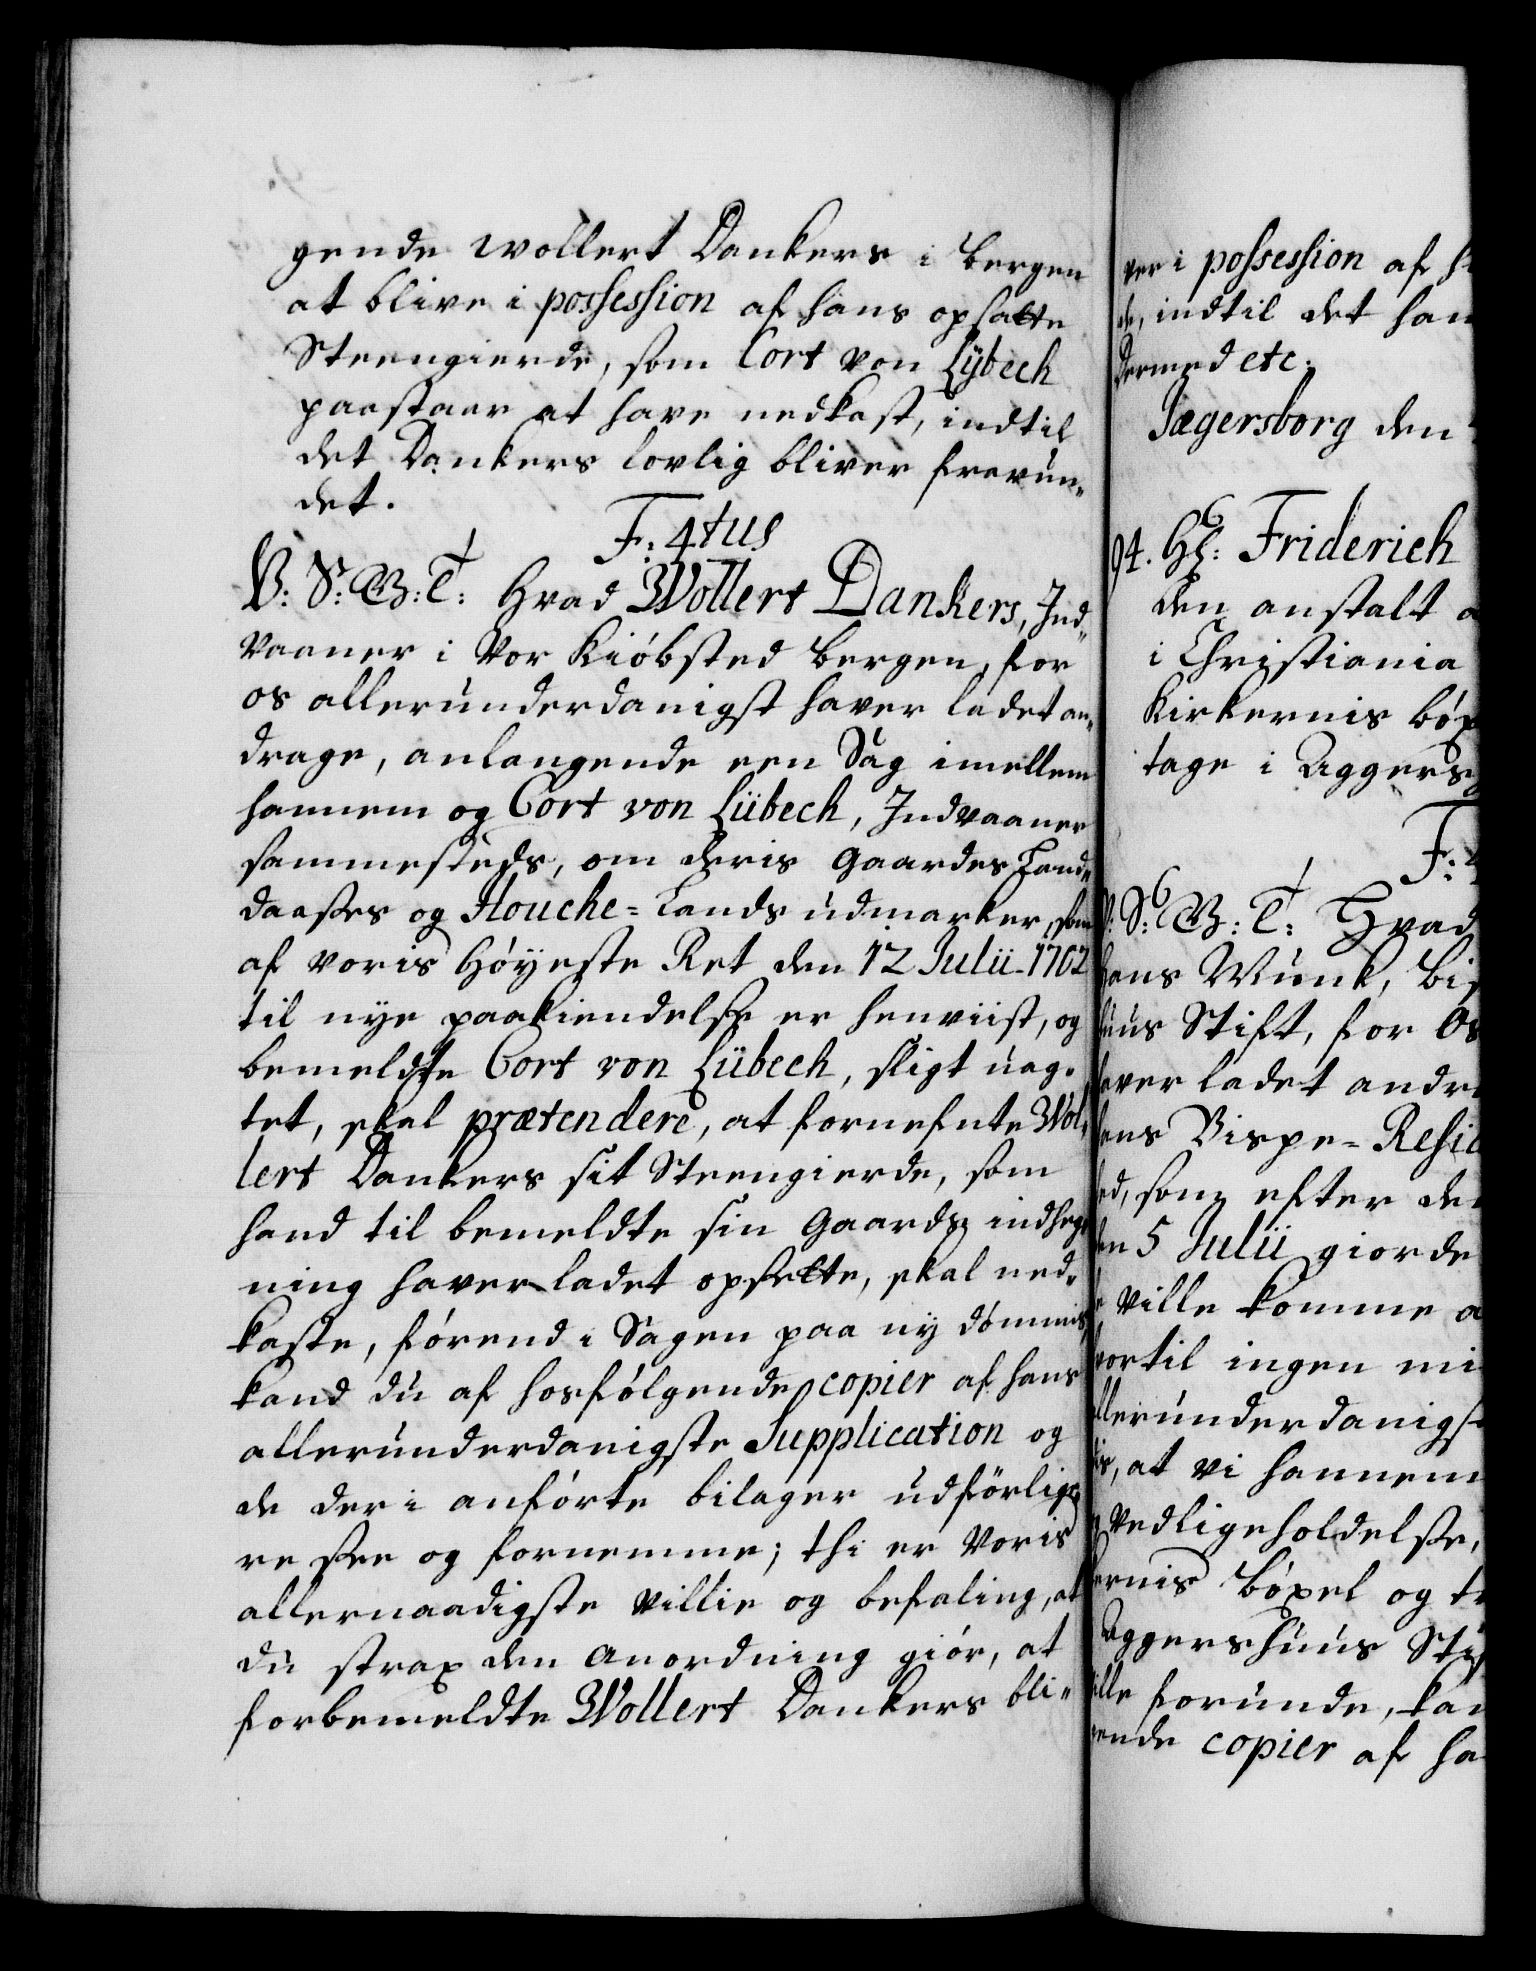 gende Wollert Dankers i Bergen
at blive i possession af hans opsatte
Steengierde, som Cort von Lÿbech
paastaar at have nedkast, indtil
det Dankers lovlig bliver fravun„
det.
F: 4tus
V: S: G: T: Hvad Wollert Dankers, Ind„
vaaner i Vor Kiöbsted Bergen, for
os allerunderdanigst haver ladet an„
drage, anlangende een Sag imellem
hannem og Cort von Lübech, Indvaaner
sammesteds, om deris Gaardes Land„
daasses og Houche=Lands udmarker, som
af voris Höÿeste Ret den 12 Julii 1702
til nye paakiendelse er henviist, og
bemeldte Cort von Lübech, sligt uag„
tet, skal prætendere, at fornefnte Wol„
lert Dankers sit Steengierde, som
hand til bemeldte sin Gaards indheg„
ning haver ladet opsette, skal ned„
kaste, förend i Sagen paa ny dömmis,
kand du af hosfölgende copier af hans
allerunderdanigste Supplication og
de der i anförte bilager udförlige„
re see og fornemme; thi er Voris
allernaadigste villie og befaling, at
du strax den anordning giör, at
forbemeldte Wollert Dankers bli„
ver i possession af
de, indtil det
Dermed etc.
Jægersborg den
94. Hr: Friderich
den anstalt
i Christiania
Kirkernis
tage i
F:
V: S: G: T: Hvad
Hans Munk,
huus Stift, for Os
haver ladet
hans Bispe=
sted, som efter
den 5 Julii giorde
ville komme
hvortil ingen
allerunderdanigst
at vi hannem
vedligeholdelse,
kernis böxel og
Aggershuus
ville forunde,
gende copier af